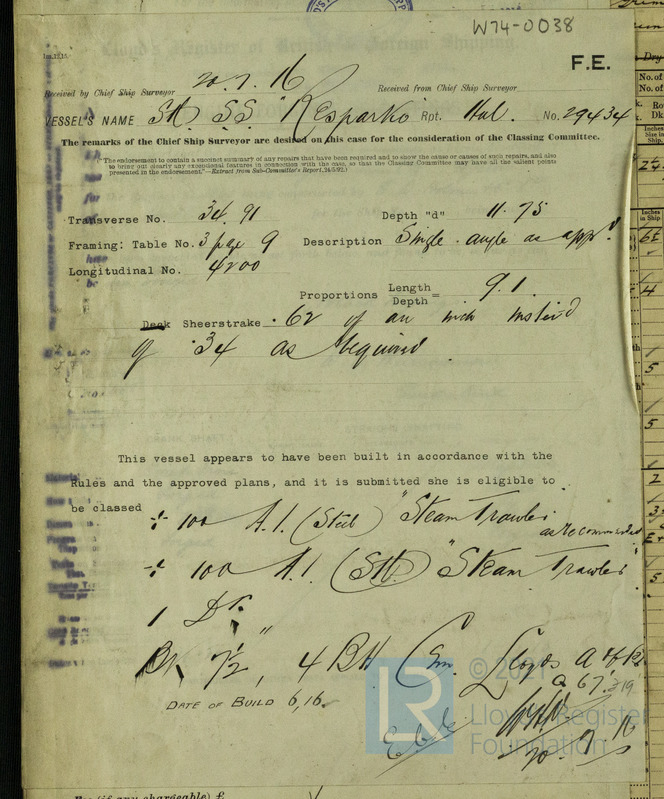 W74-0038
F.E.
20.7.16
Received by Chief Ship Surveyor Received from Chief Ship Surveyor
VESSEL'S NAME St. SS "Resparko" Rpt. Hul. No. 29434
The remarks of the Chief Ship Surveyor are desired on this case for the consideration of the Classing Committee.
("The endorsement to contain a succinct summary of any repairs that have been required and to show the cause or causes of such repairs, and also
to bring out clearly any exceptional features in connection with the case, so that the Classing Committee may have all the salient points
presented in the endorsement."—Extract from Sub-Committee's Report, 24/5/92.)
Transverse No. 34.91 Depth "d" 11.75
Framing: Table No. 3 page 9 Description Single angle as appd.
Longitudinal No. 4200
Proportions Length/Depth = 9.1.
Deck Sheerstrake .62 of an inch instead
of .34 as required.
This vessel appears to have been built in accordance with the
Rules and the approved plans, and it is submitted she is eligible to
be classed
100 A.1. (Steel) "Steam Trawler"
as recommended
100 A.1. (Stl.) "Steam Trawler"
1 Dk.
BK 7½", 4 BH Cem. Lloyds A & CP.
DATE OF BUILD 6,16.
20.7.16
© 2021
LR
Lloyd's Register
Foundation